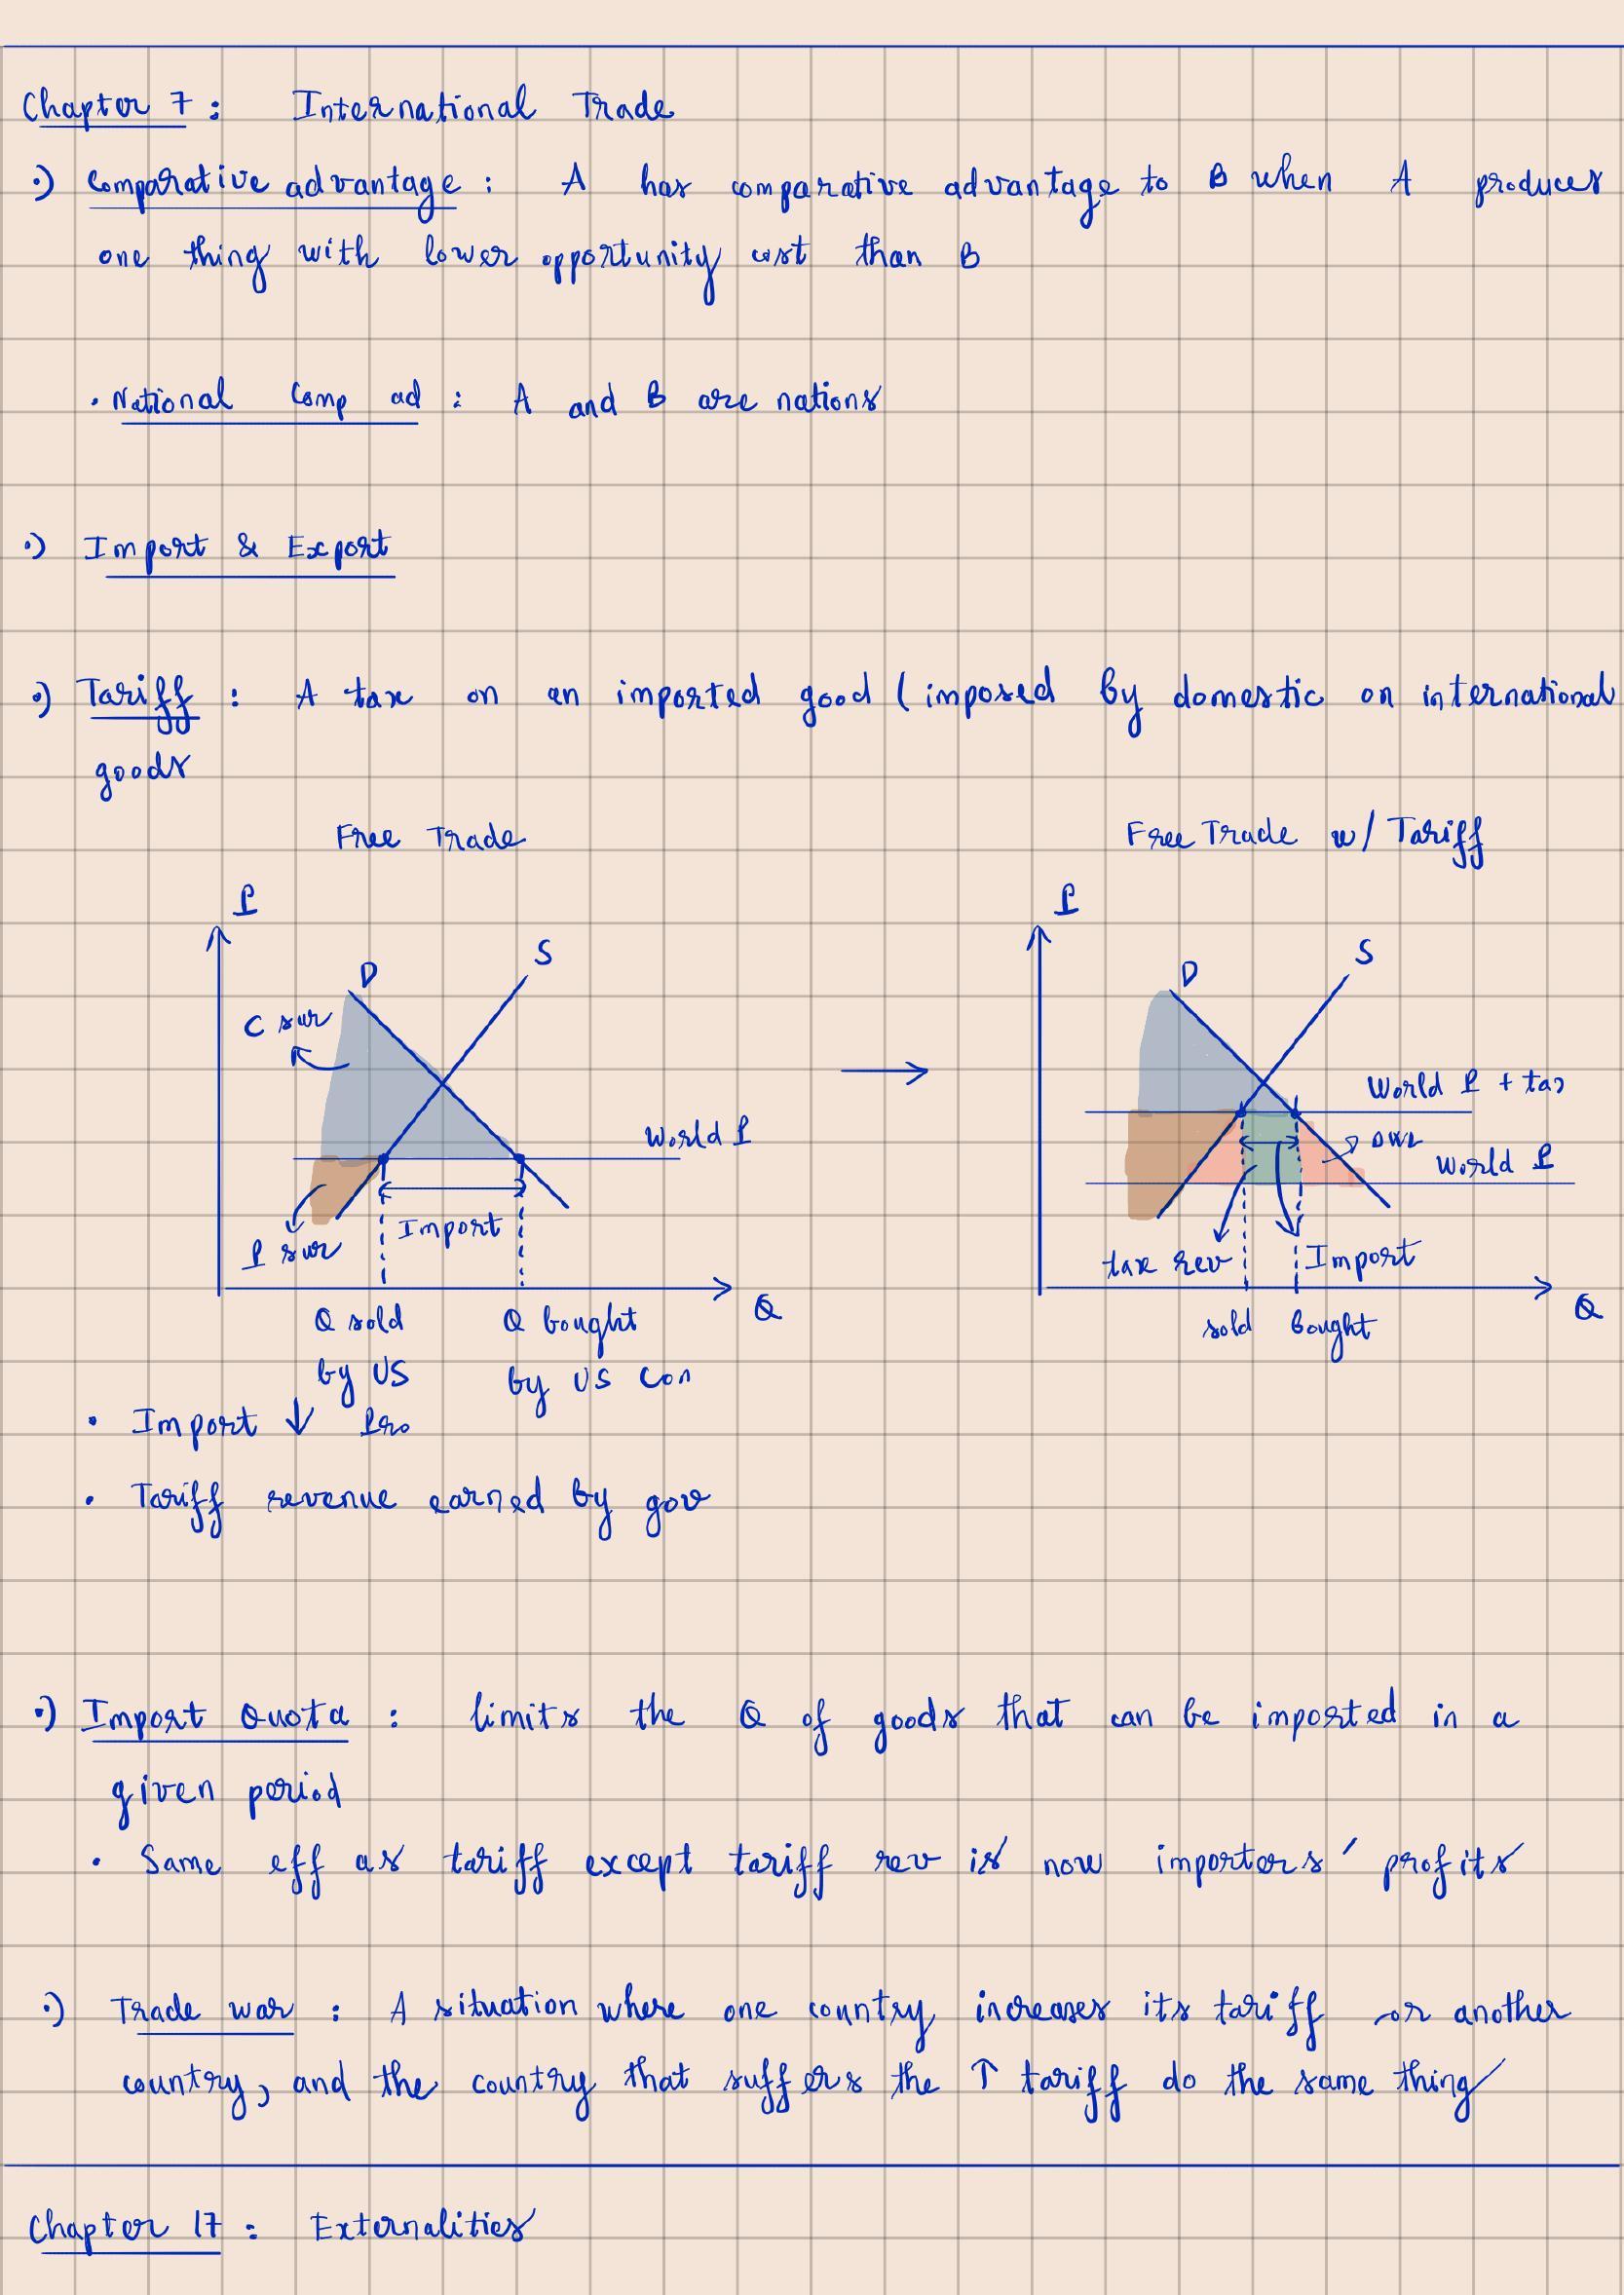 Chapter 7 : International Trade
•) Comparative advantage : A has comparative advantage to B when A produces
one thing with lower opportunity cost than B
• National Comp ad : A and B are nations
•) Import & Export
•) Tariff : A tax on an imported good ( imposed by domestic on international
goods
Free Trade
P
D
S
C sur
World P
Import
P sur
Q
Q sold
by US
Q bought
by US con
Free Trade w/ Tariff
P
D
S
World P + tax
DWL
World P
tax rev
Import
Q
sold
bought
• Import ↓ Pro
• Tariff revenue earned by gov
•) Import Quota : limits the Q of goods that can be imported in a
given period
• Same eff as tariff except tariff rev is now importers' profits
•) Trade war : A situation where one country increases its tariff another
country, and the country that suffers the ↑ tariff do the same thing
Chapter 17 : Externalities